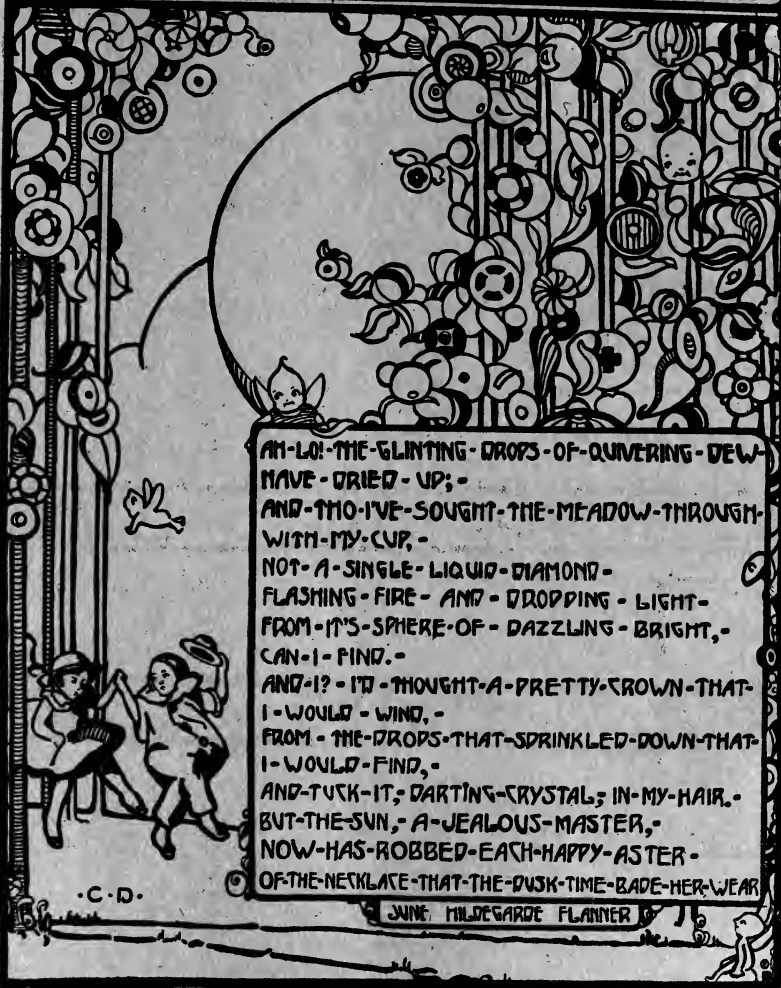 AH-LO!-THE-GLINTING-DROPS-OF-QUIVERING-DEW-
HAVE-DRIED-UP;-
AND-THO-I'VE-SOUGHT-THE-MEADOW-THROUGH-
WITH-MY-CUP,-
NOT-A-SINGLE-LIQUID-DIAMOND-
FLASHING-FIRE-AND-DROPPING-LIGHT-
FROM-IT'S-SPHERE-OF-DAZZLING-BRIGHT,-
CAN-I-FIND.-
AND-I?-I'D-THOUGHT-A-PRETTY-CROWN-THAT-
I-WOULD-WIND,-
FROM-THE-DROPS-THAT-SPRINKLED-DOWN-THAT-
I-WOULD-FIND,-
AND-TUCK-IT,-DARTING-CRYSTAL,-IN-MY-HAIR.-
BUT-THE-SUN,-A-JEALOUS-MASTER,-
NOW-HAS-ROBBED-EACH-HAPPY-ASTER-
OF-THE-NECKLACE-THAT-THE-DUSK-TIME-BADE-HER-WEAR
JUNE HILDEGARDE FLANNER
·C·D·